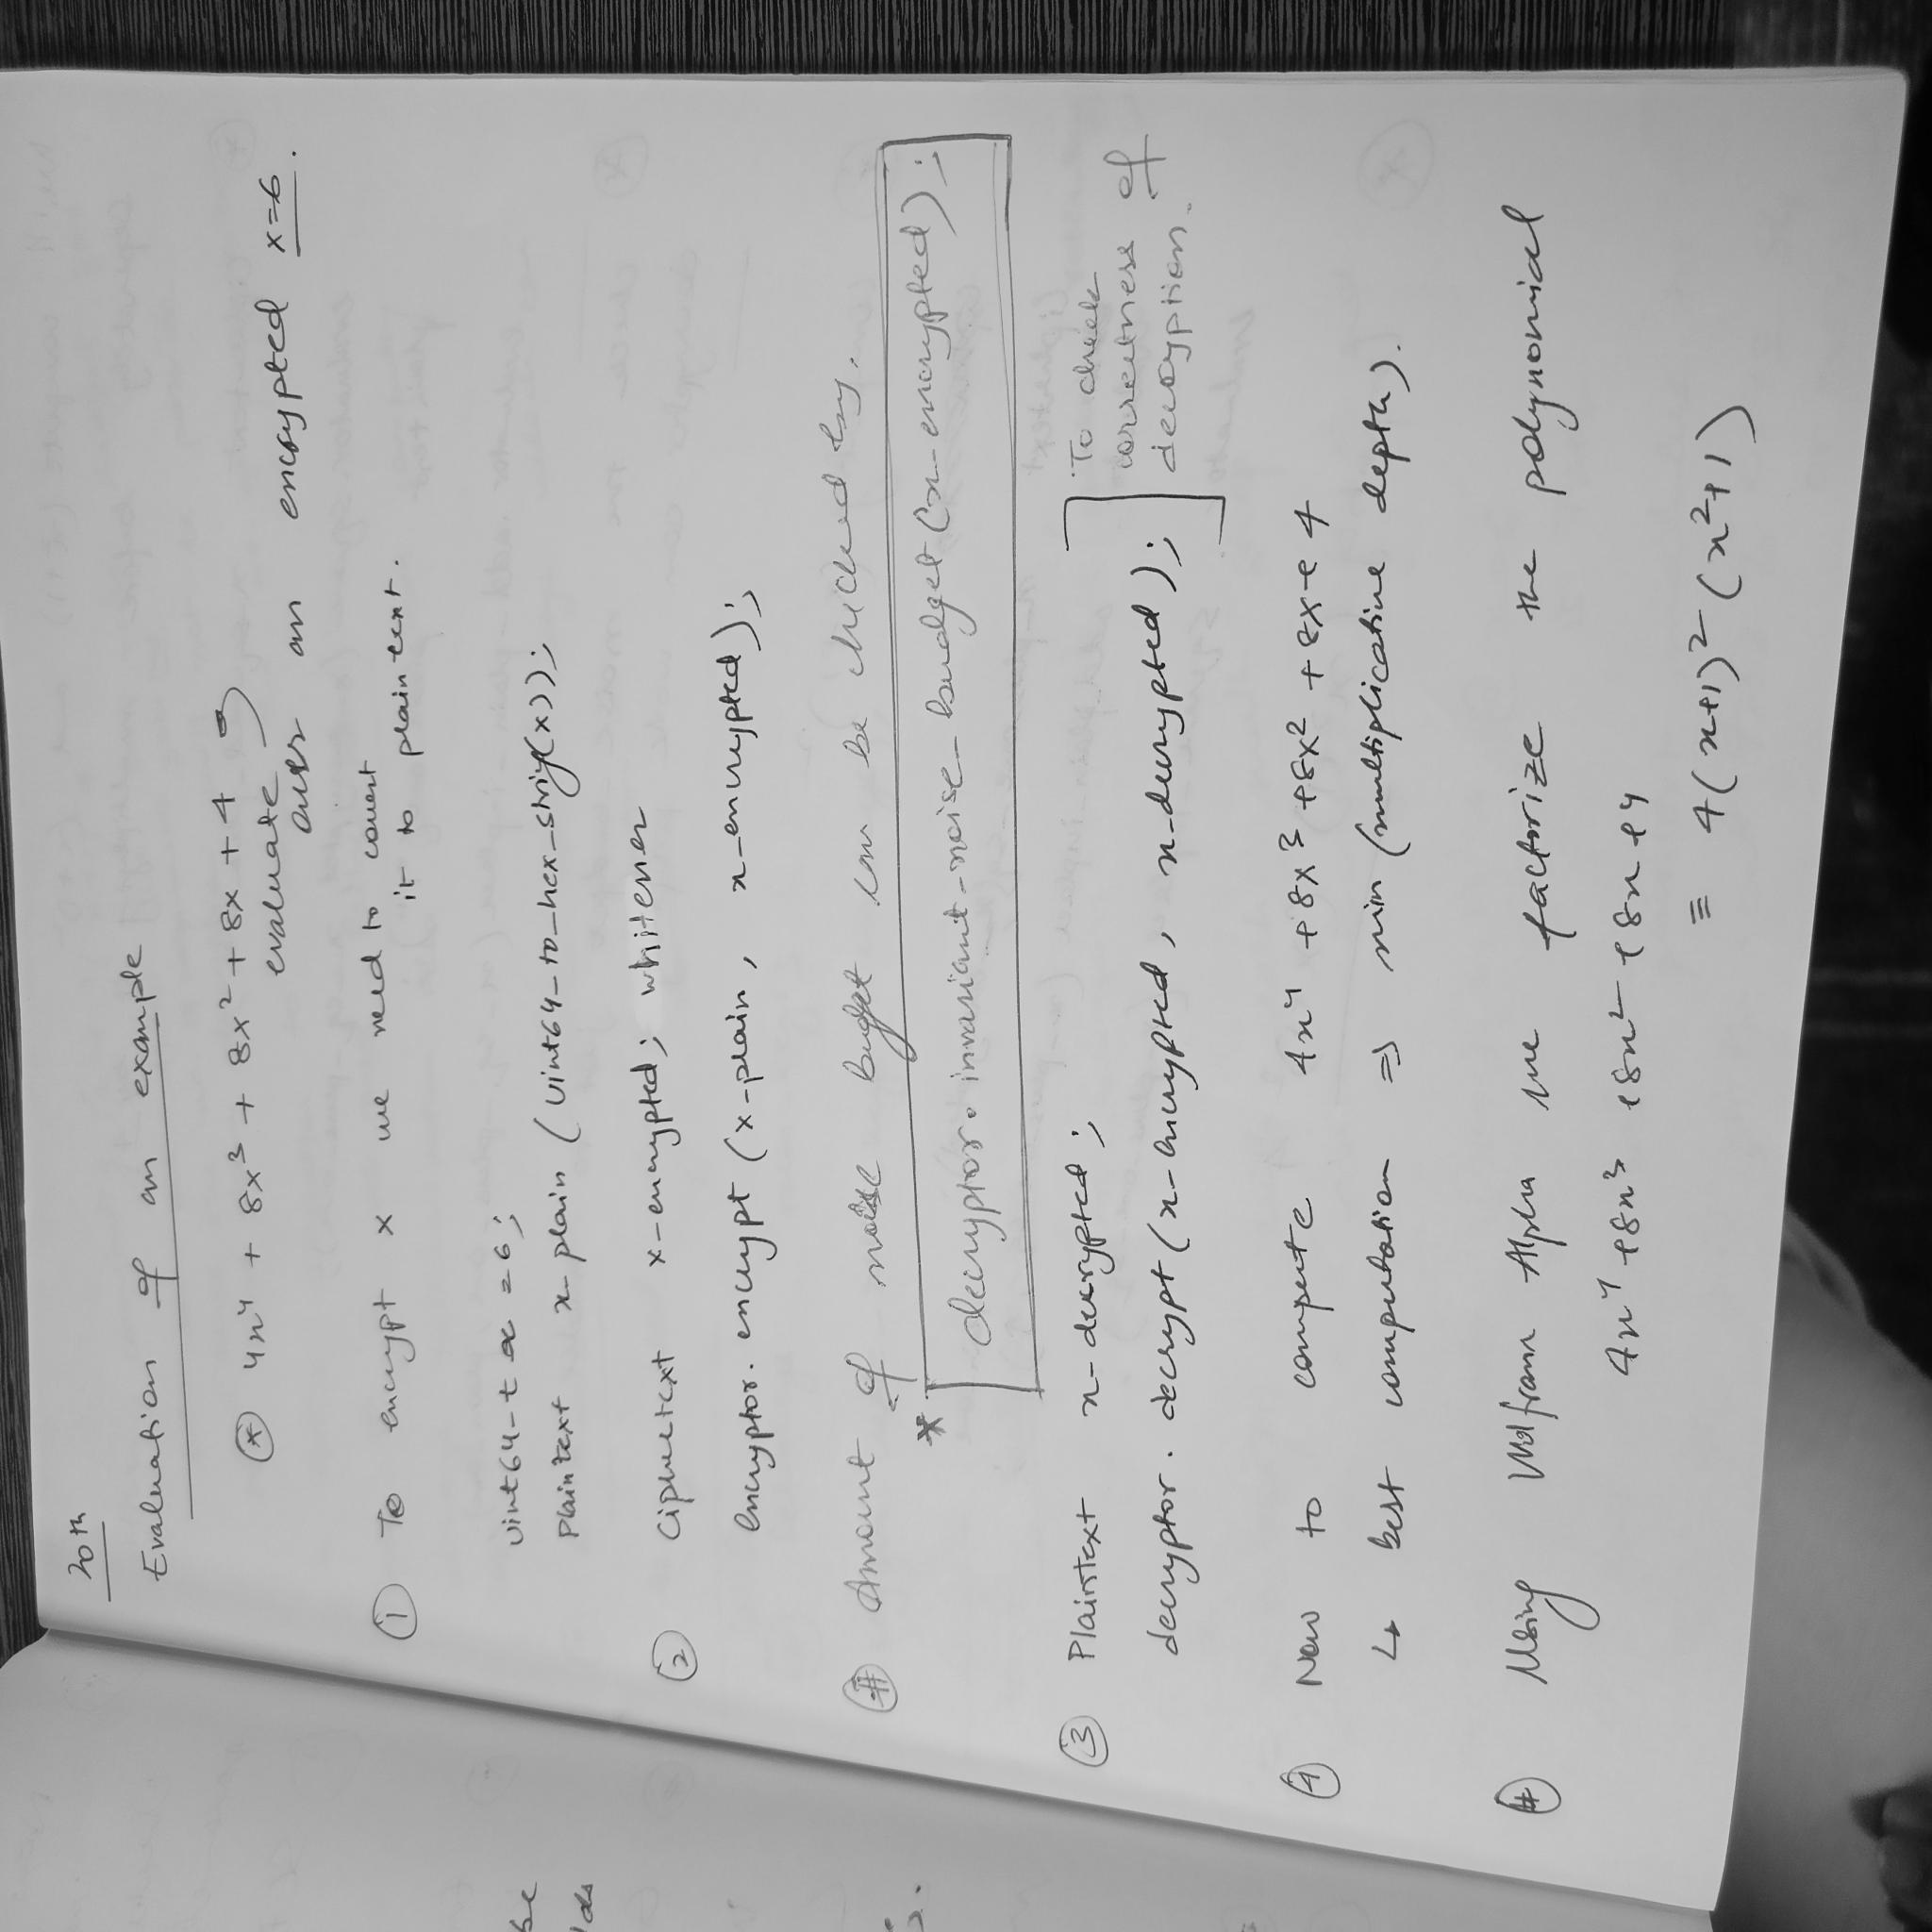 20th
Evaluation of an example
(*) 4x⁴ + 8x³ + 8x² + 8x + 4
evaluate
over an encrypted x=6.
① To encrypt x we need to convert
it to plaintext.
uint64-t x = 6;
Plaintext x-plain (uint64_to_hex_string(x));
② Ciphertext x-encrypted; whitener
encryptor. encrypt (x-plain, x-encrypted);
(#) Amount of noise budget can be checked by,
* decryptor. invariant-noise_budget (x-encrypted);
③ Plaintext x-decrypted;
decryptor. decrypt (x-encrypted, x-decrypted);
To check
correctness of
decryption.
④ Now to compute 4x⁴ + 8x³ + 8x² + 8x + 4
↳ best computation ⇒ min (multiplicative depth).
(#) Using Wolfram Alpha we factorize the polynomial
4x⁴ + 8x³ + 8x² + 8x + 4
≡ 4(x+1)² (x²+1)